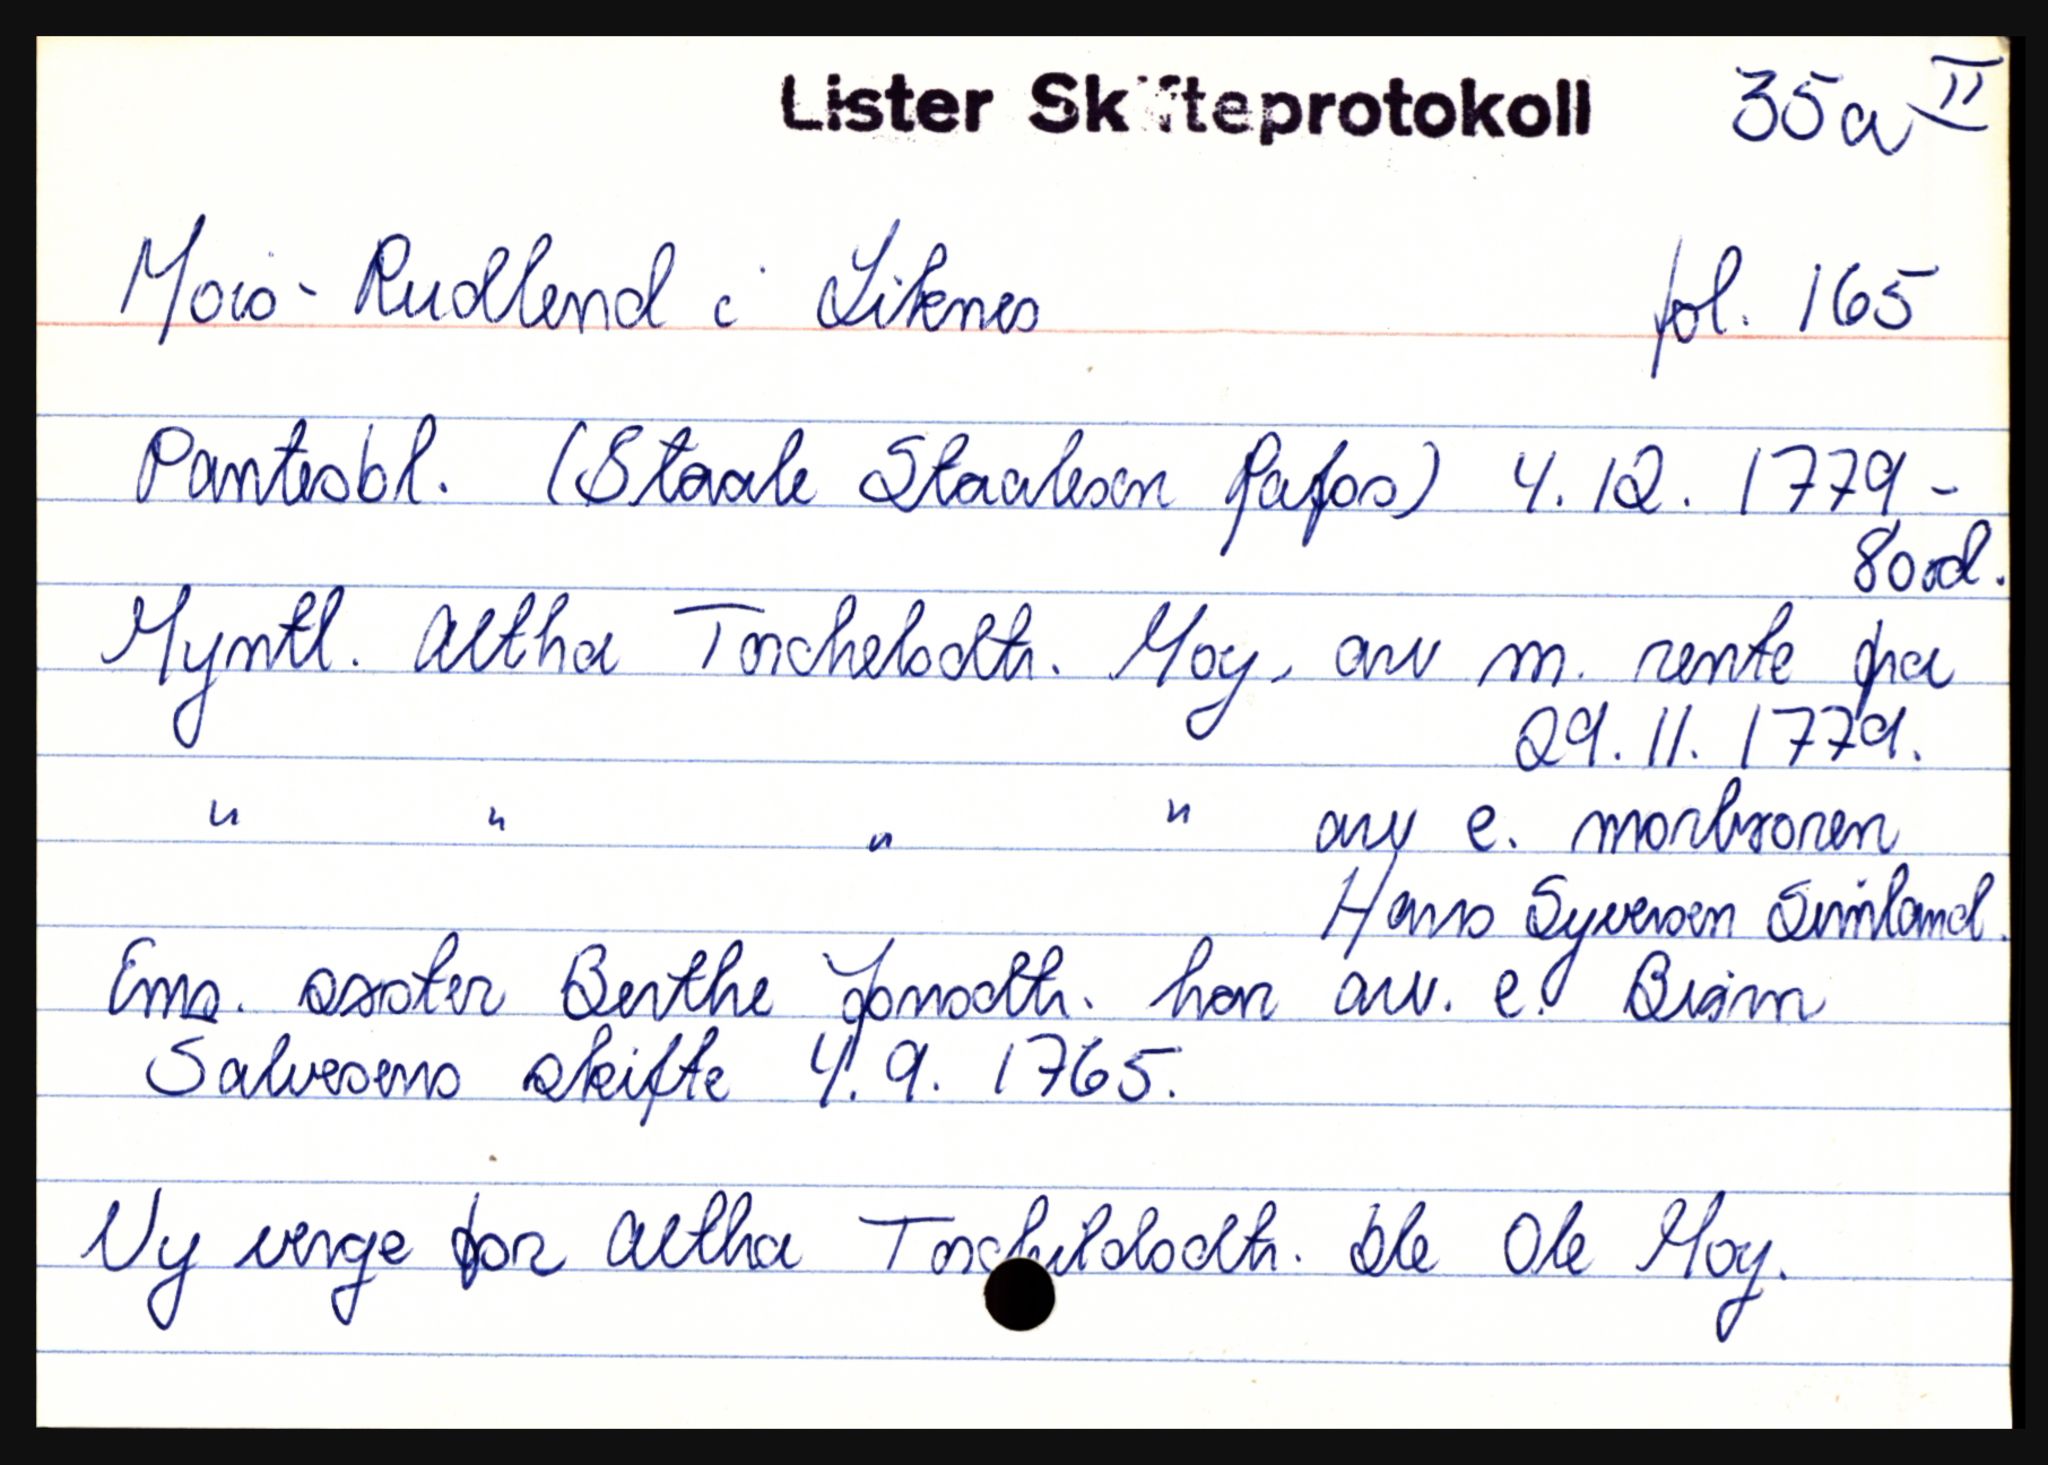 Lister Skifteprotokoll 35a II
Mois- Rudlend i Liknes fol. 165
Pantesbl. (Staale Staalesen Rafos) 4.12.1779 -
80rd.
Myntl. Altha Torchelsdtr. Moy, arv m. rente fra
29.11.1779.
" " " " arv e. morbroren
Hans Syversen Sinland.
Ens. søster Berthe Jonsdtr. har arv. e. Biørn
Salvesens skifte 4.9.1765.
Ny verge for Altha Torchildsdtr. ble Ole Moy.